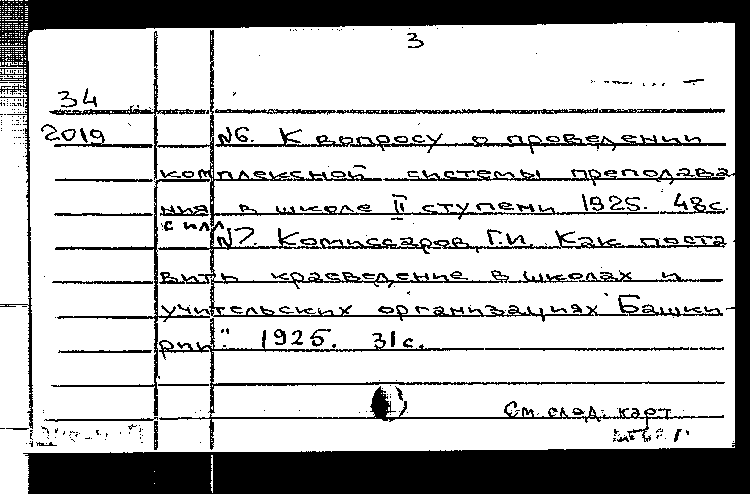 3
34
2019 №6. К вопросу о проведении
комплексной системы преподава
ния в школе II ступени 1925. 48с.
с илл
№7. Комиссаров, Г.И. Как поста
вить краеведение в школах и
учительских организациях Башки-
рии". 1925. 31с.
См. след. карт